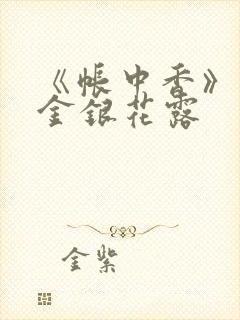 《帐中香》
金银花露
金紫